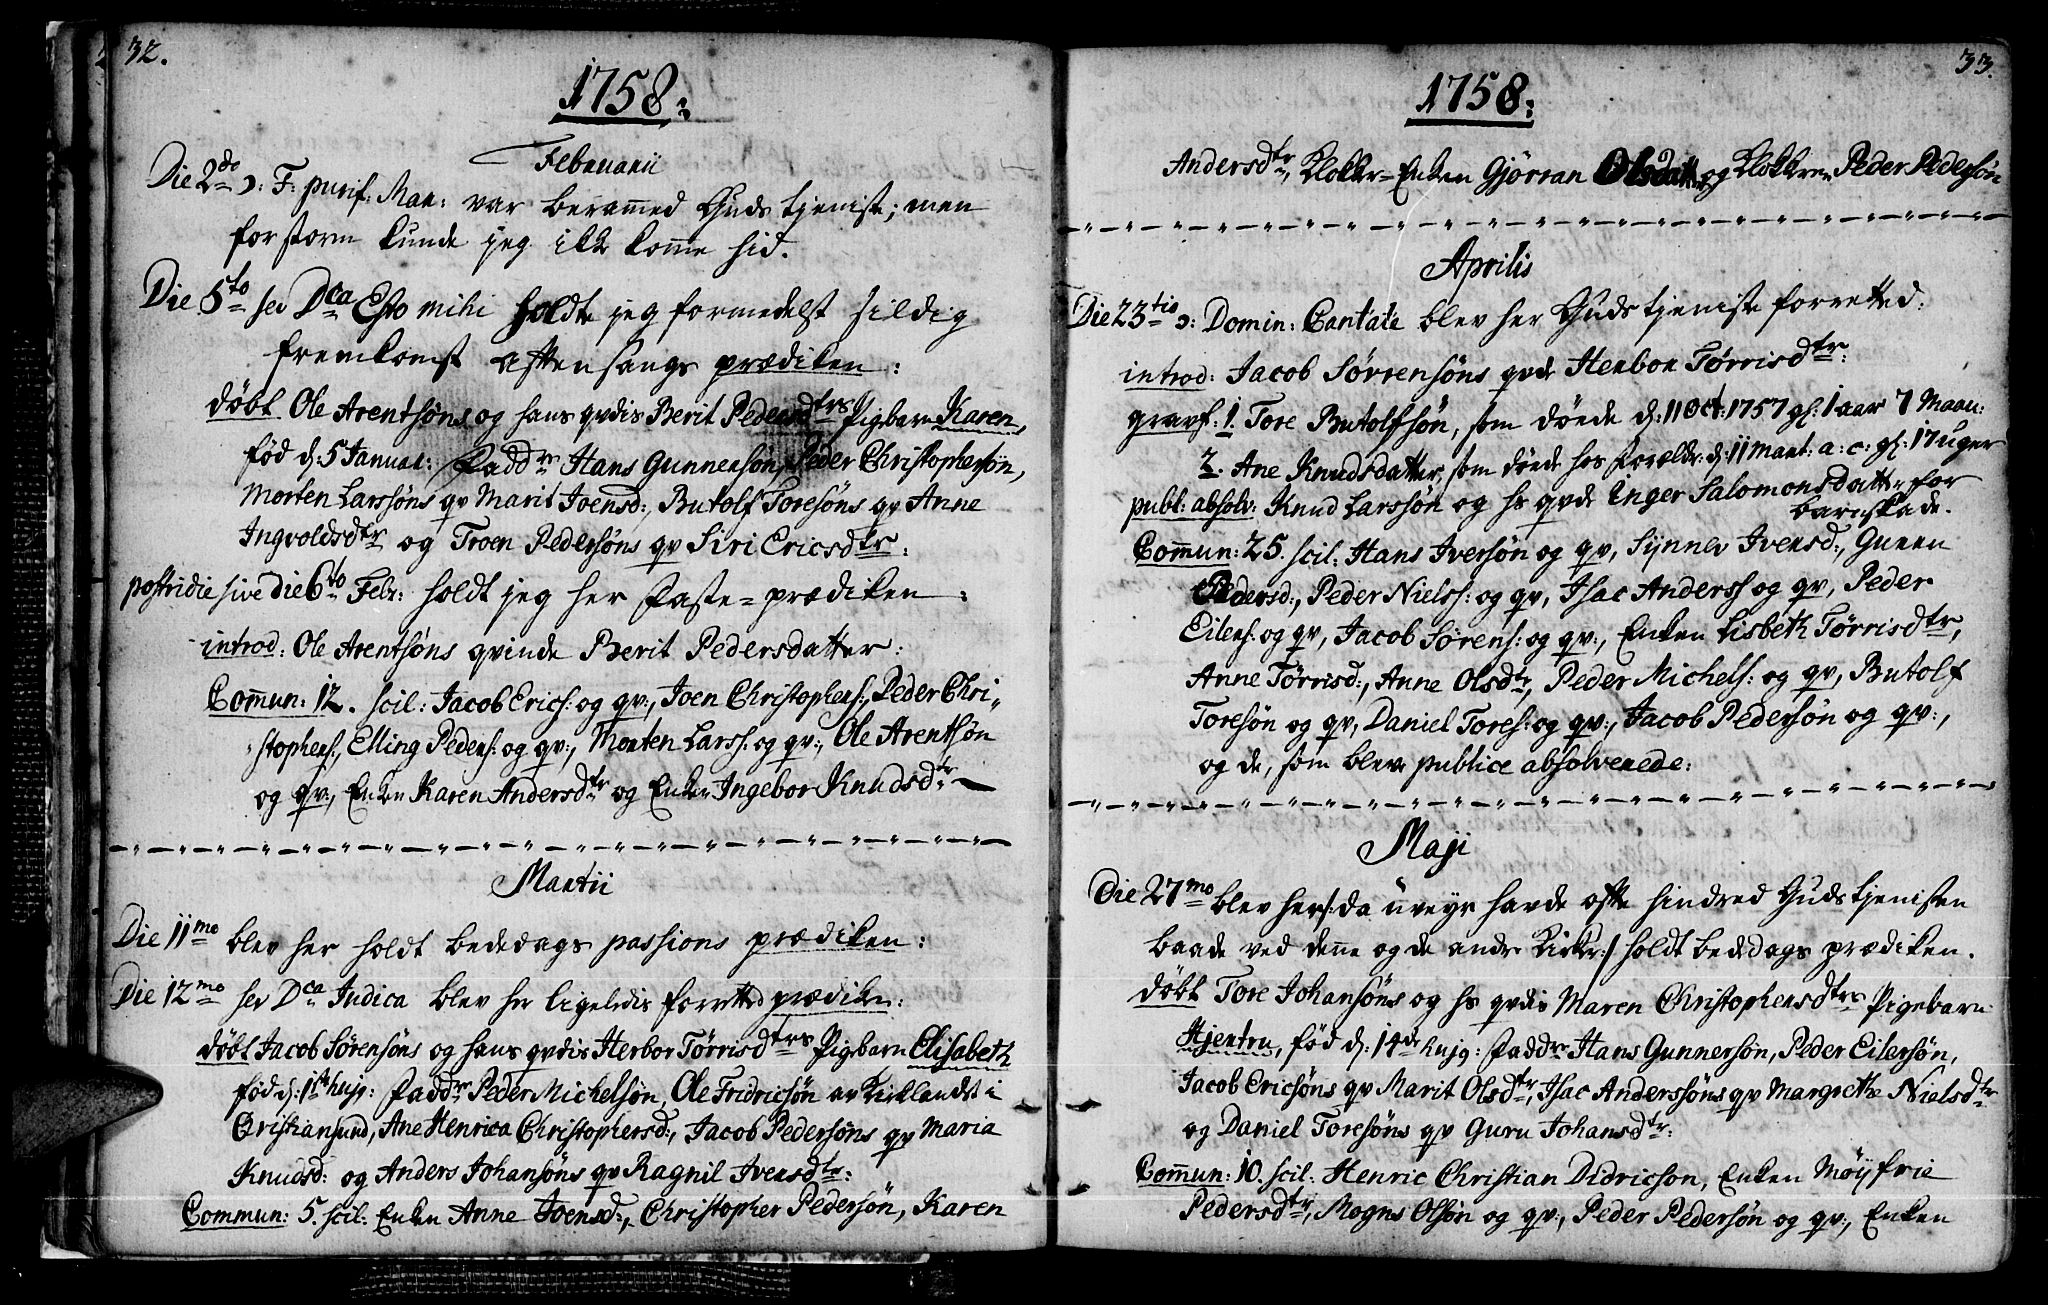 32.
1758:
Februarii
Die 2do ɔ: F: purif: Mar: var berammed Guds tjeniste; men
for storm kunde jeg ikke komme hid.
Die 5to sev Dca Esto mihi holdte jeg formedelst sildig
fremkomst aftensangs prædiken:
døbt Ole Arentsøns og hans qvdis Berit Pedersdtrs Pigebarn Karen,
fød d: 5 Januar: Faddre Hans Gunnersøn, Peder Christophersøn,
Morten Larssøns qv Marit Joensd:, Butolf Toresøns qv Anne
Ingvoldsdtr og Troen Pedersøns qv Siri Ericsdtr:
postridie sive die 6to Febr: holdt jeg her Faste=prædiken:
introd: Ole Arentsøns qvinde Berit Pedersdatter:
Commun: 12. scil: Jacob Erics: og qv:, Joen Christophers:, Peder Chri-
stophers:, Elling Peders: og qv:, Morten Larss: og qv:, Ole Arentsøn
og qv:, Enken Karen Andersdtr og Enken Ingebor Knudsdtr
Martii
Die 11mo blev her holdt bededags passions prædiken:
Die 12mo sev Dca Judica blev her ligeledis forretted prædiken:
døbt Jacob Sørensøns og hans qvdis Herbor Tørrisdtrs Pigebarn Elisabeth
fød d: 1ste hujg: Faddre Peder Michelsøn, Ole Fridricsøn av Kirklandet i
Christiansund, Ane Henrica Christophersd:, Jacob Pedersøns qv Maria
Knudsd: og Anders Johansøns qv Ragnil Iversdtr:
Commun: 5. scil: Enken Anne Joensd:, Christopher Pedersøn, Karen
33.
1758:
Andersdtr, Klokker=Enken Gjørran Olsdatter og Klokkeren Peder Pedersøn
Aprilis
Die 23tio ɔ: Domin: Cantate blev her Guds tjeniste forretted:
introd: Jacob Sørrensøns qvde Herbor Tørrisdtr:
gravf: 1. Tore Butolfsøn, som døede d: 11 Oct: 1757 gl: 1 aar 7 Maan:
2. Ane Knudsdatter, som døde hos Foreldr: d: 11 Mart: a: c: gl: 17 uger
publ: absolv: Knud Larssøn og hs qvde Inger Salomonsdatter for
barnskade.
Commun: 25. scil: Hans Iversøn og qv, Synnev Iversd:, Guren
Pedersd:, Peder Niels: og qv, Isac Anderss og qv, Peder
Eilers: og qv, Jacob Sørens: og qv:, Enken Lisbeth Tørrisdtr,
Anne Tørrisd:, Anne Olsdtr, Peder Michels: og qv, Butolf
Toresøn og qv, Daniel Tores: og qv:, Jacob Pedersøn og qv:,
og de, som bleve publice absolverede:
Maji
Die 27mo blev her /: da uveyr havde ofte hindred Guds tjenisten
baade ved denne og de andre Kirker :/ holdt bededags prædiken.
døbt Tore Johansøns og hs qvdis Maren Christophersdtrs Pigebarn
Hjertru, fød d: 14de hujg: Faddre Hans Gunnersøn, Peder Eilersøn,
Jacob Ericsøns qv Marit Olsdtr, Isac Anderssøns qv Margrethe Nielsdtr
og Daniel Toresøns qv Guru Johansdtr:
Commun: 10. scil: Henric Christian Didricson, Enken Møyfrie
Pedersdtr, Mogns Olsøn og qv:, Peder Pedersøn og qv:, Enken